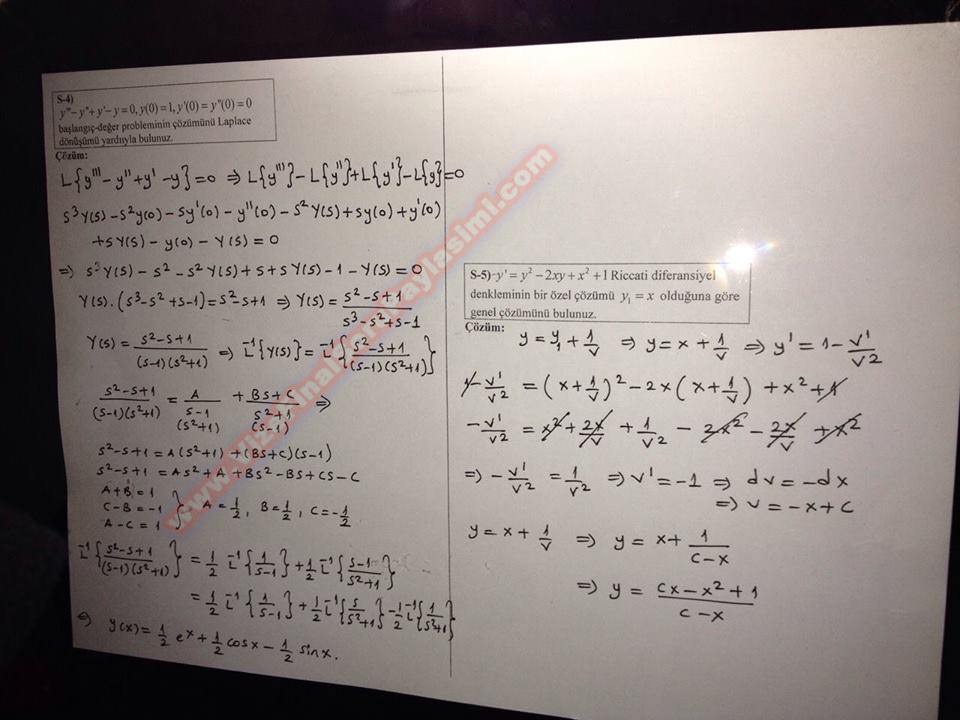 S-4)
y'''-y''+y'-y=0, y(0)=1, y'(0)=y''(0)=0
başlangıç-değer probleminin çözümünü Laplace
dönüşümü yardıyla bulunuz.
Çözüm:
L{y'''-y''+y'-y}=0 ⇒ L{y'''}-L{y''}+L{y'}-L{y}=0
s³Y(s)-s²y(0)-sy'(0)-y''(0)-s²Y(s)+sy(0)+y'(0)
+sY(s)-y(0)-Y(s)=0
⇒ s³Y(s)-s²-s²Y(s)+s+sY(s)-1-Y(s)=0
Y(s).(s³-s²+s-1)=s²-s+1 ⇒ Y(s)=(s²-s+1)/(s³-s²+s-1)
Y(s)=(s²-s+1)/((s-1)(s²+1)) ⇒ L⁻¹{Y(s)}=L⁻¹{(s²-s+1)/((s-1)(s²+1))}
(s²-s+1)/((s-1)(s²+1)) = A/(s-1) + (Bs+C)/(s²+1) ⇒
(s²+1) (s-1)
s²-s+1=A(s²+1)+(Bs+C)(s-1)
s²-s+1=As²+A+Bs²-Bs+Cs-C
A+B=1
C-B=-1 } A=1/2, B=1/2, C=-1/2
A-C=1
L⁻¹{(s²-s+1)/((s-1)(s²+1))} = 1/2 L⁻¹{1/(s-1)}+1/2 L⁻¹{(s-1)/(s²+1)}
= 1/2 L⁻¹{1/(s-1)}+1/2 L⁻¹{s/(s²+1)}-1/2 L⁻¹{1/(s²+1)}
⇒ y(x)=1/2 eˣ+1/2 cosx-1/2 sinx.
S-5)-y'=y²-2xy+x²+1 Riccati diferansiyel
denkleminin bir özel çözümü y₁=x olduğuna göre
genel çözümünü bulunuz.
Çözüm:
y=y₁+1/v ⇒ y=x+1/v ⇒ y'=1-v'/v²
1-v'/v²=(x+1/v)²-2x(x+1/v)+x²+1
-v'/v²=x²+2x/v+1/v²-2x²-2x/v+x²
⇒ -v'/v²=1/v² ⇒ v'=-1 ⇒ dv=-dx
⇒ v=-x+c
y=x+1/v ⇒ y=x+1/(c-x)
⇒ y=(cx-x²+1)/(c-x)